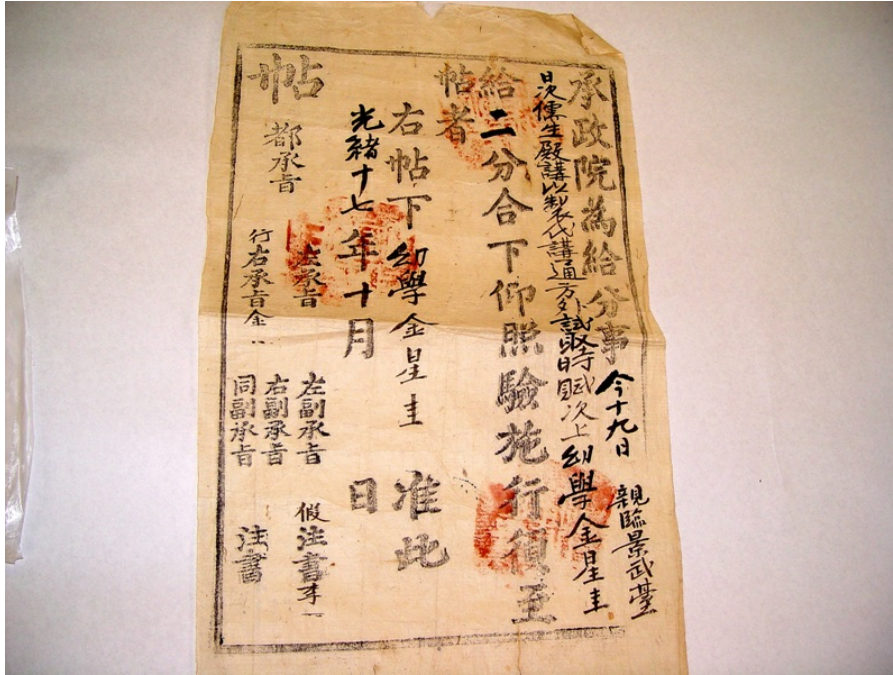 承政院為給分事今十九日親臨景武臺
日次儒生殿講以製代講通方外試取時賦次上幼學金星圭
給二分合下仰照驗施行須至
帖者
右帖下幼學金星圭准此
光緒十七年十月日
帖
都承旨
左承旨
行右承旨金
左副承旨
右副承旨
同副承旨
假注書李
注書